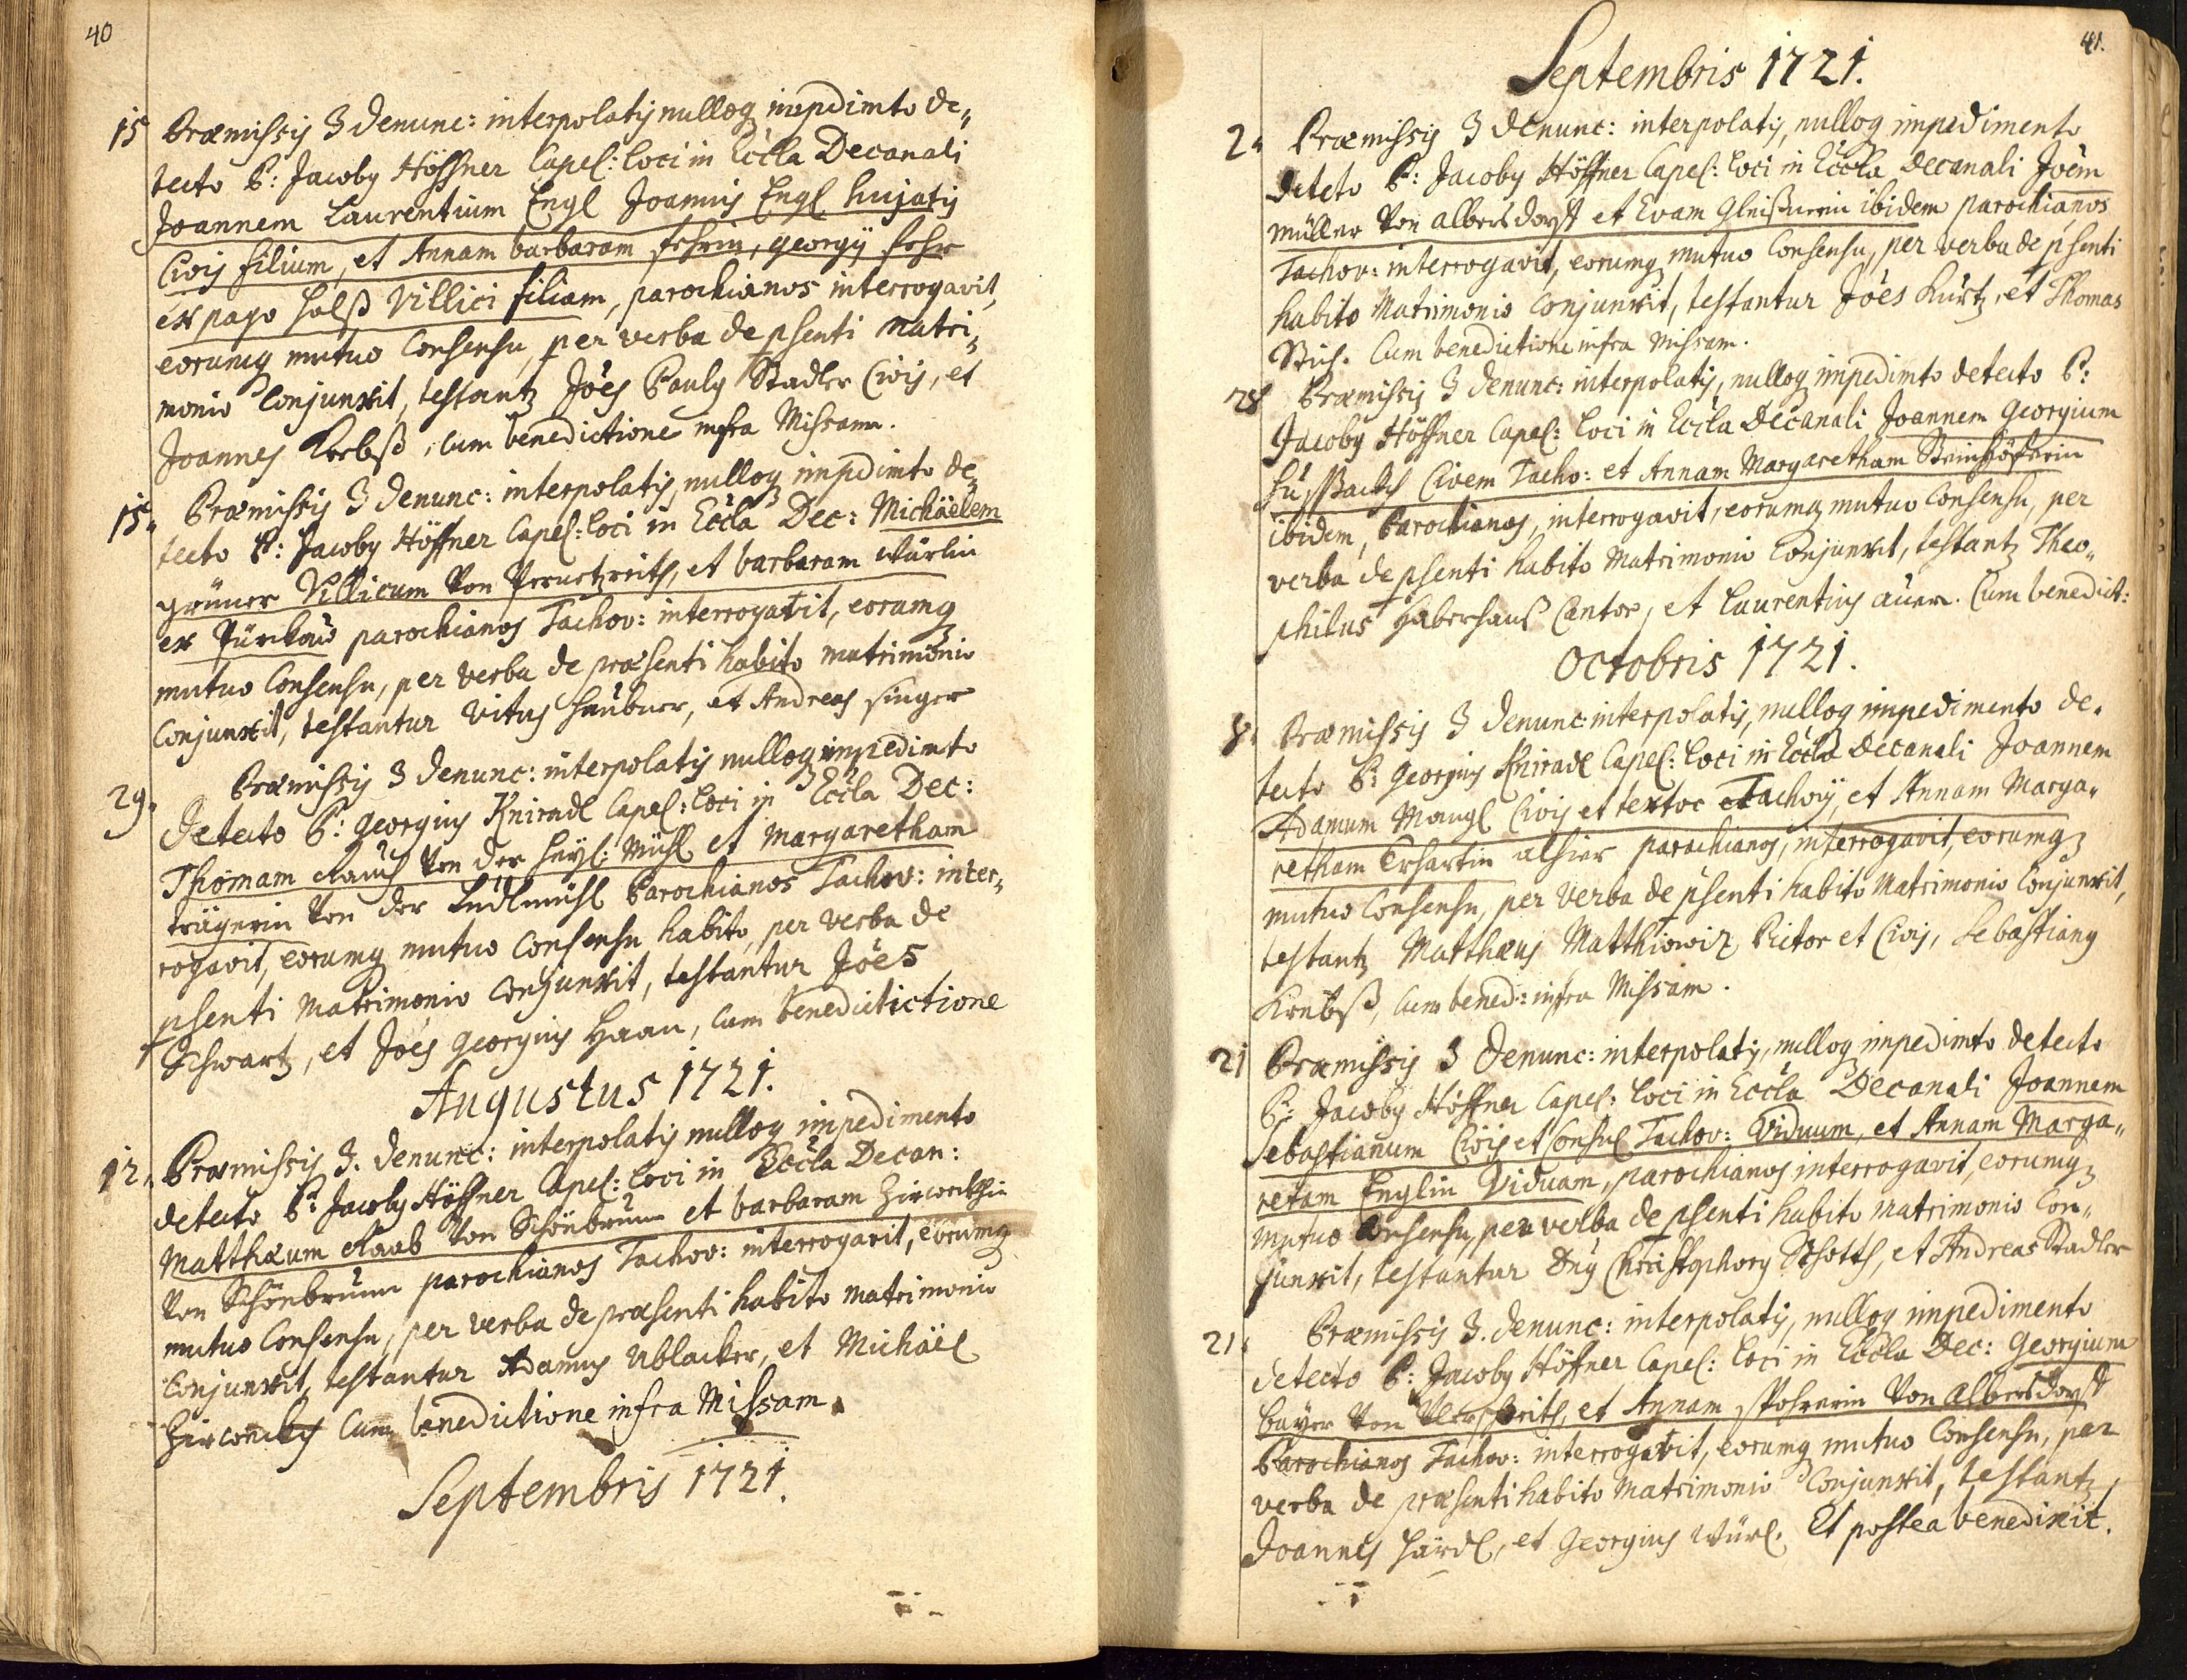 40
15 Præmissis 3 denunc: interpolatis nulloq impdimto de„
tecto P: Jacobg Höffner Capel: loci in Eccla Decanali
Joannem Laurentium Engl Joannis Engl hujatis
Civis filium, et Annam barbaram fehrin, georgÿ fehr
ex pago Holß Villici filiam, parochianos interrogavit,
eorumq mutuo Consensu, per verba de psenti matri„
monio Conjunxit, testantz Jões Paulg Stadler Civis, et
Joannes Krebß, cum benedictione infra Missam.
15. Præmissis 3 denunc: interpolatis, nulloq impdimto de„
tecto P: Jacobg Höffner Capel: loci in Eccla Dec: Michäelem
grüner Villicum Von, et barbaram Würlin
ex Pürkau parochianos Tachov: interrogavit, eorumq
mutuo Consensu, per verba de præsenti habito matrimonio
Conjunxit, testantur Vitus Haubner, et Andreas singer
29. Præmissis 3 denunc: interpolatis nulloq impedimto
detecto P: georgius Kniradl Capel: loci in Eccla Dec:
Thomam Rauch Von der Heÿl: Mühl et Margaretham
trägerin Von der Ludlmühl Parochianos Tachov: inter„
rogavit, eorumq mutuo Consensu habito, per verba de
psenti Matrimonio Conjunxit, testantur Jões
Schwartz, et Jões georgius Haan, cum benedictictione
Augustus 1721.
12. Præmissis 3. denunc: interpolatis nulloq impedimento
detecto P: Jacobg Höffner Capel: loci in Eccla Decan:
Matthæum Raab Von Schönbrunn et barbaram Zirwickhin
Von Schönbrunn parochianos Tachov: interrogavit, eorumq
mutuo Consensu, per verba de præsenti habito matrimonio
Conjunxit, testantur Adamus Ublacker, et Michäel
Cum benedictione infra Missam.
Septembris 1721.
41.
Septembris 1721.
2. Præmissis 3 denunc: interpolatis, nulloq impedimento
detecto P: Jacobg Höffner Capel: loci in Eccla Decanali Joem
müller Von albersdorff et Evam Gleißnerin ibidem parochianos
Tachov: interrogavit, eorumq mutuo Consensu, per verba de psenti
habito Matrimonio Conjunxit, testantur Jões Kurtz, et Thomas
Stich. Cum benedictione infra Missam.
28 Præmissis 3 denunc: interpolatis, nulloq impedimto detecto P:
Jacobg Höffner Capel: loci in Eccla Decanali Joannem georgium
Civem Tacho: et Annam Margaretham Steinhöferin
ibidem, Parochianos, interrogavit, eorumq mutuo Consensu, per
verba de psenti habito Matrimonio Conjunxit, testantz Theo„
philus Haberhauß Cantor, et Laurentius auer. Cum benedict:
Octobris 1721.
8. Præmissis 3 denunc: interpolatis, nulloq impedimento de„
tecto P: georgius Kniradl Capel: loci in Eccla Decanali Joannem
Adamum Mangl Civis et textor Tachovÿ, et Annam Marga„
retham Erhartin alhier parochianos, interrogavit, eorumq
mutuo Consensu, per verba de psenti habito Matrimonio Conjunxit,
testantz Matthæus Matthiowiz Pictor et Civis, Sebastiang
Krebß, Cum bened: infra Missam.
21 Præmissis 3 denunc: interpolatis, nulloq impedimto detecto
P: Jacobg Höffner Capel: loci in Eccla Decanali Joannem
Sebastianum Civis et Consul Tachov: Viduum, et Annam Marga„
retam Englin Viduam, parochianos interrogavit, eorumq
mutuo Consensu, per verba de psenti habito matrimonio Con„
junxit, testantur Dng Christophorg Schotth, et Andreas Stadler
21. Præmissis 3. denunc: interpolatis, nulloq impedimento
detecto P: Jacobg Höffner Capel: loci in Eccla Dec: Georgium
bayer Von, et Annam Spohrerin Von albersdorff
Parochianos Tachov: interrogavit, eorumq mutuo Consensu, per
verba de præsenti habito Matrimonio Conjunxit, testantz
Joannes Härdl, et Georgius Würl. Et postea benedixit.